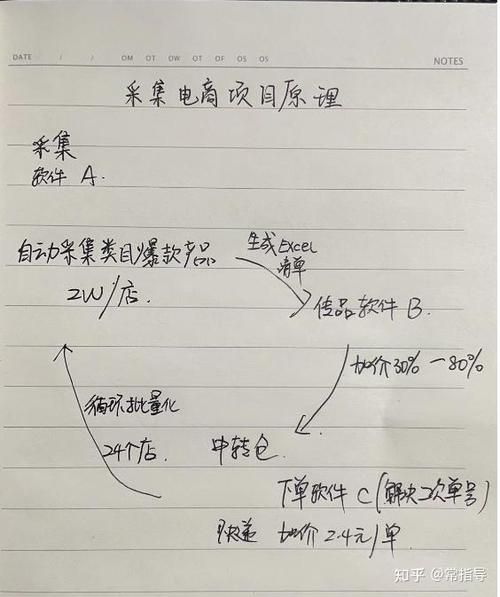 DATE / / OM OT OW OT OF OS OS
NOTES
采集电商项目原理
采集
软件 A.
自动采集类目爆款产品
2W/店.
生成Excel
清单
传品软件 B.
加价30%-80%
循环批量化
24个店.
中转仓.
下单软件 C(解决二次单号)
快递 加价 2.4元/单
知乎 @常指导